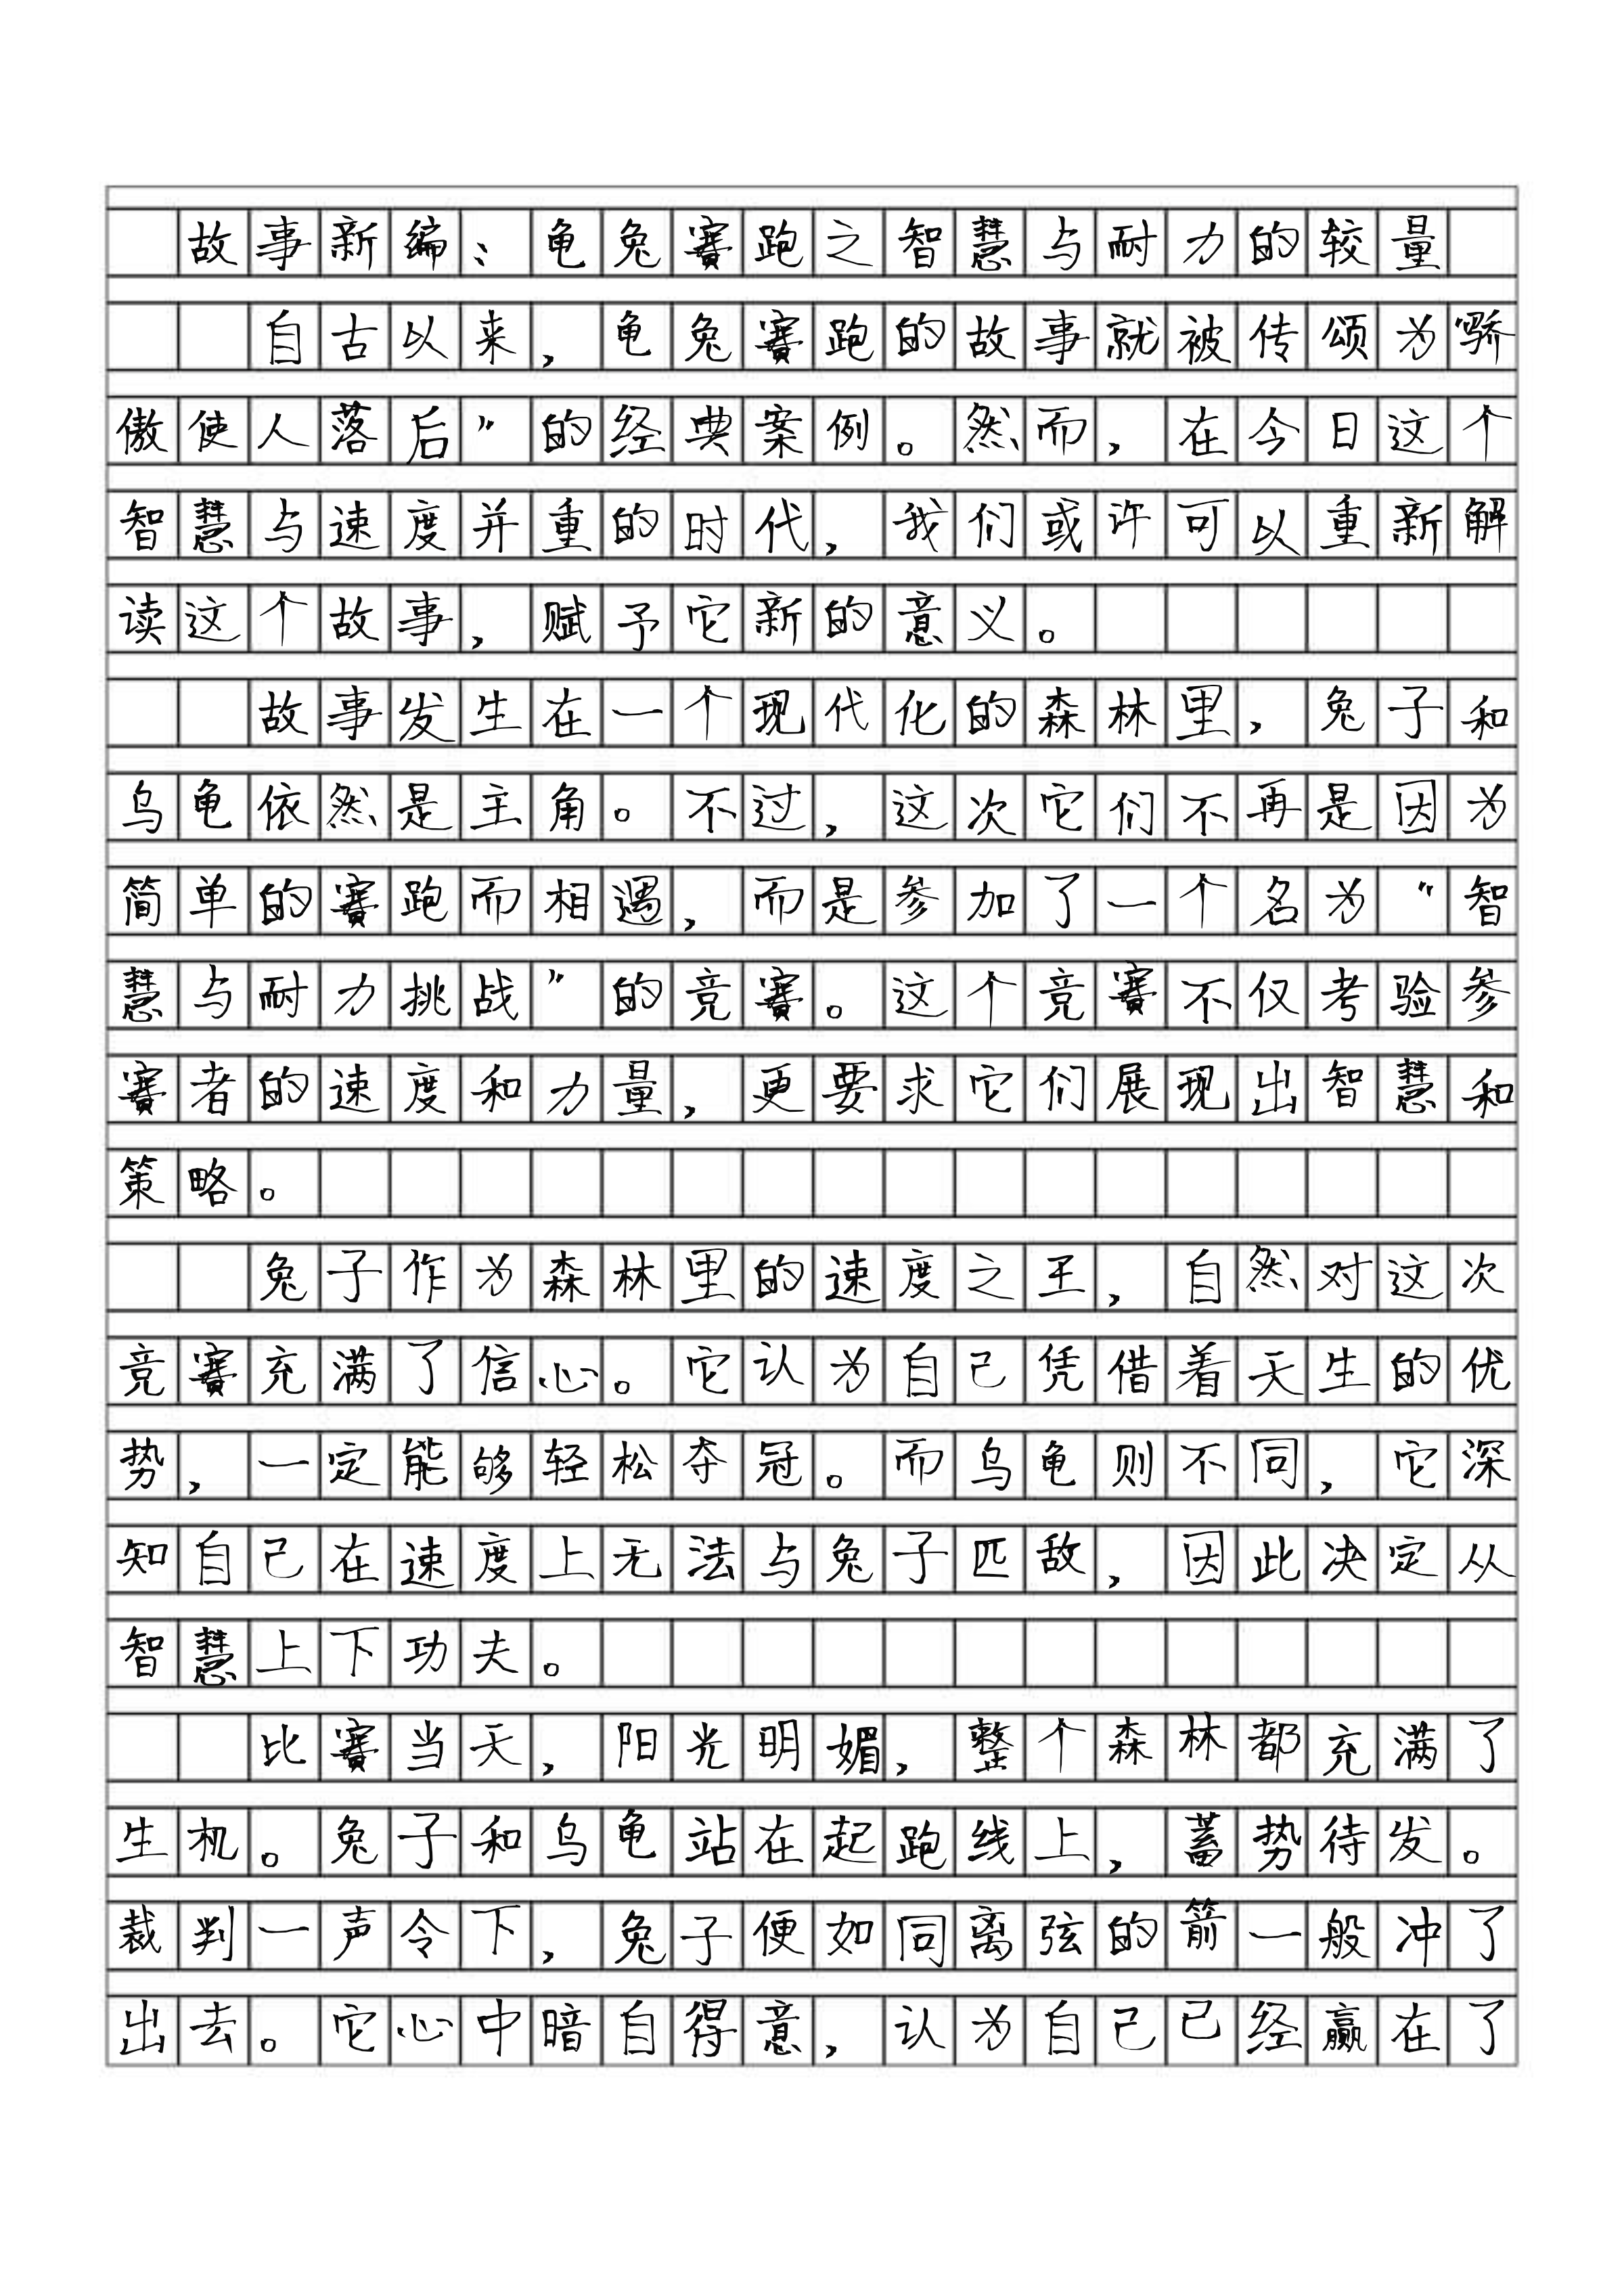 故事新编：龟兔赛跑之智慧与耐力的较量
自古以来，龟兔赛跑的故事就被传颂为“骄
傲使人落后”的经典案例。然而，在今日这个
智慧与速度并重的时代，我们或许可以重新解
读这个故事，赋予它新的意义。
故事发生在一个现代化的森林里，兔子和
乌龟依然是主角。不过，这次它们不再是因为
简单的赛跑而相遇，而是参加了一个名为“智
慧与耐力挑战”的竞赛。这个竞赛不仅考验参
赛者的速度和力量，更要求它们展现出智慧和
策略。
兔子作为森林里的速度之王，自然对这次
竞赛充满了信心。它认为自己凭借着天生的优
势，一定能够轻松夺冠。而乌龟则不同，它深
知自己在速度上无法与兔子匹敌，因此决定从
智慧上下功夫。
比赛当天，阳光明媚，整个森林都充满了
生机。兔子和乌龟站在起跑线上，蓄势待发。
裁判一声令下，兔子便如同离弦的箭一般冲了
出去。它心中暗自得意，认为自己已经赢在了